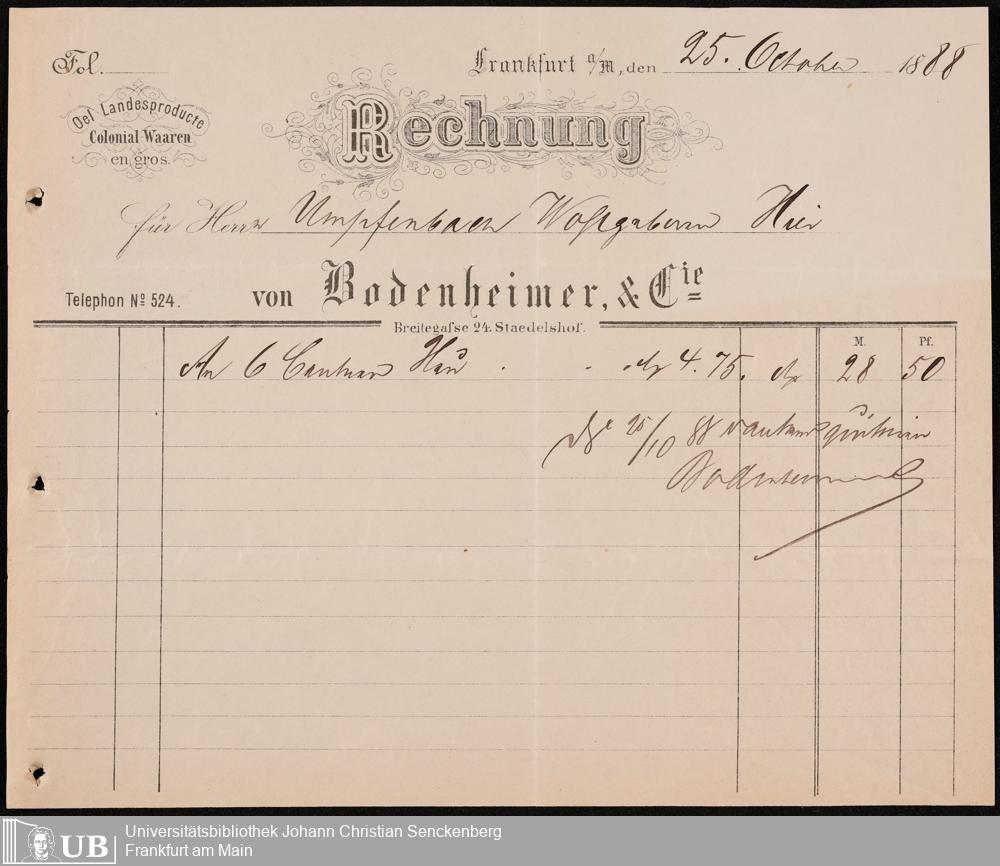 Fol.
Frankfurt a/M, den 25. October 1888
Oel Landesproducte
Colonial-Waaren
en gros.
Rechnung
für Herrn Umpfenbach Hier
Telephon No 524. von Bodenheimer, & Cie
Breitegasse 24. Staedelshof.
M. Pf.
An 6 Centner Heu . . . 4.75. 28 50
25/10 88 dankend
Bodenheimer
Universitätsbibliothek Johann Christian Senckenberg
UB Frankfurt am Main